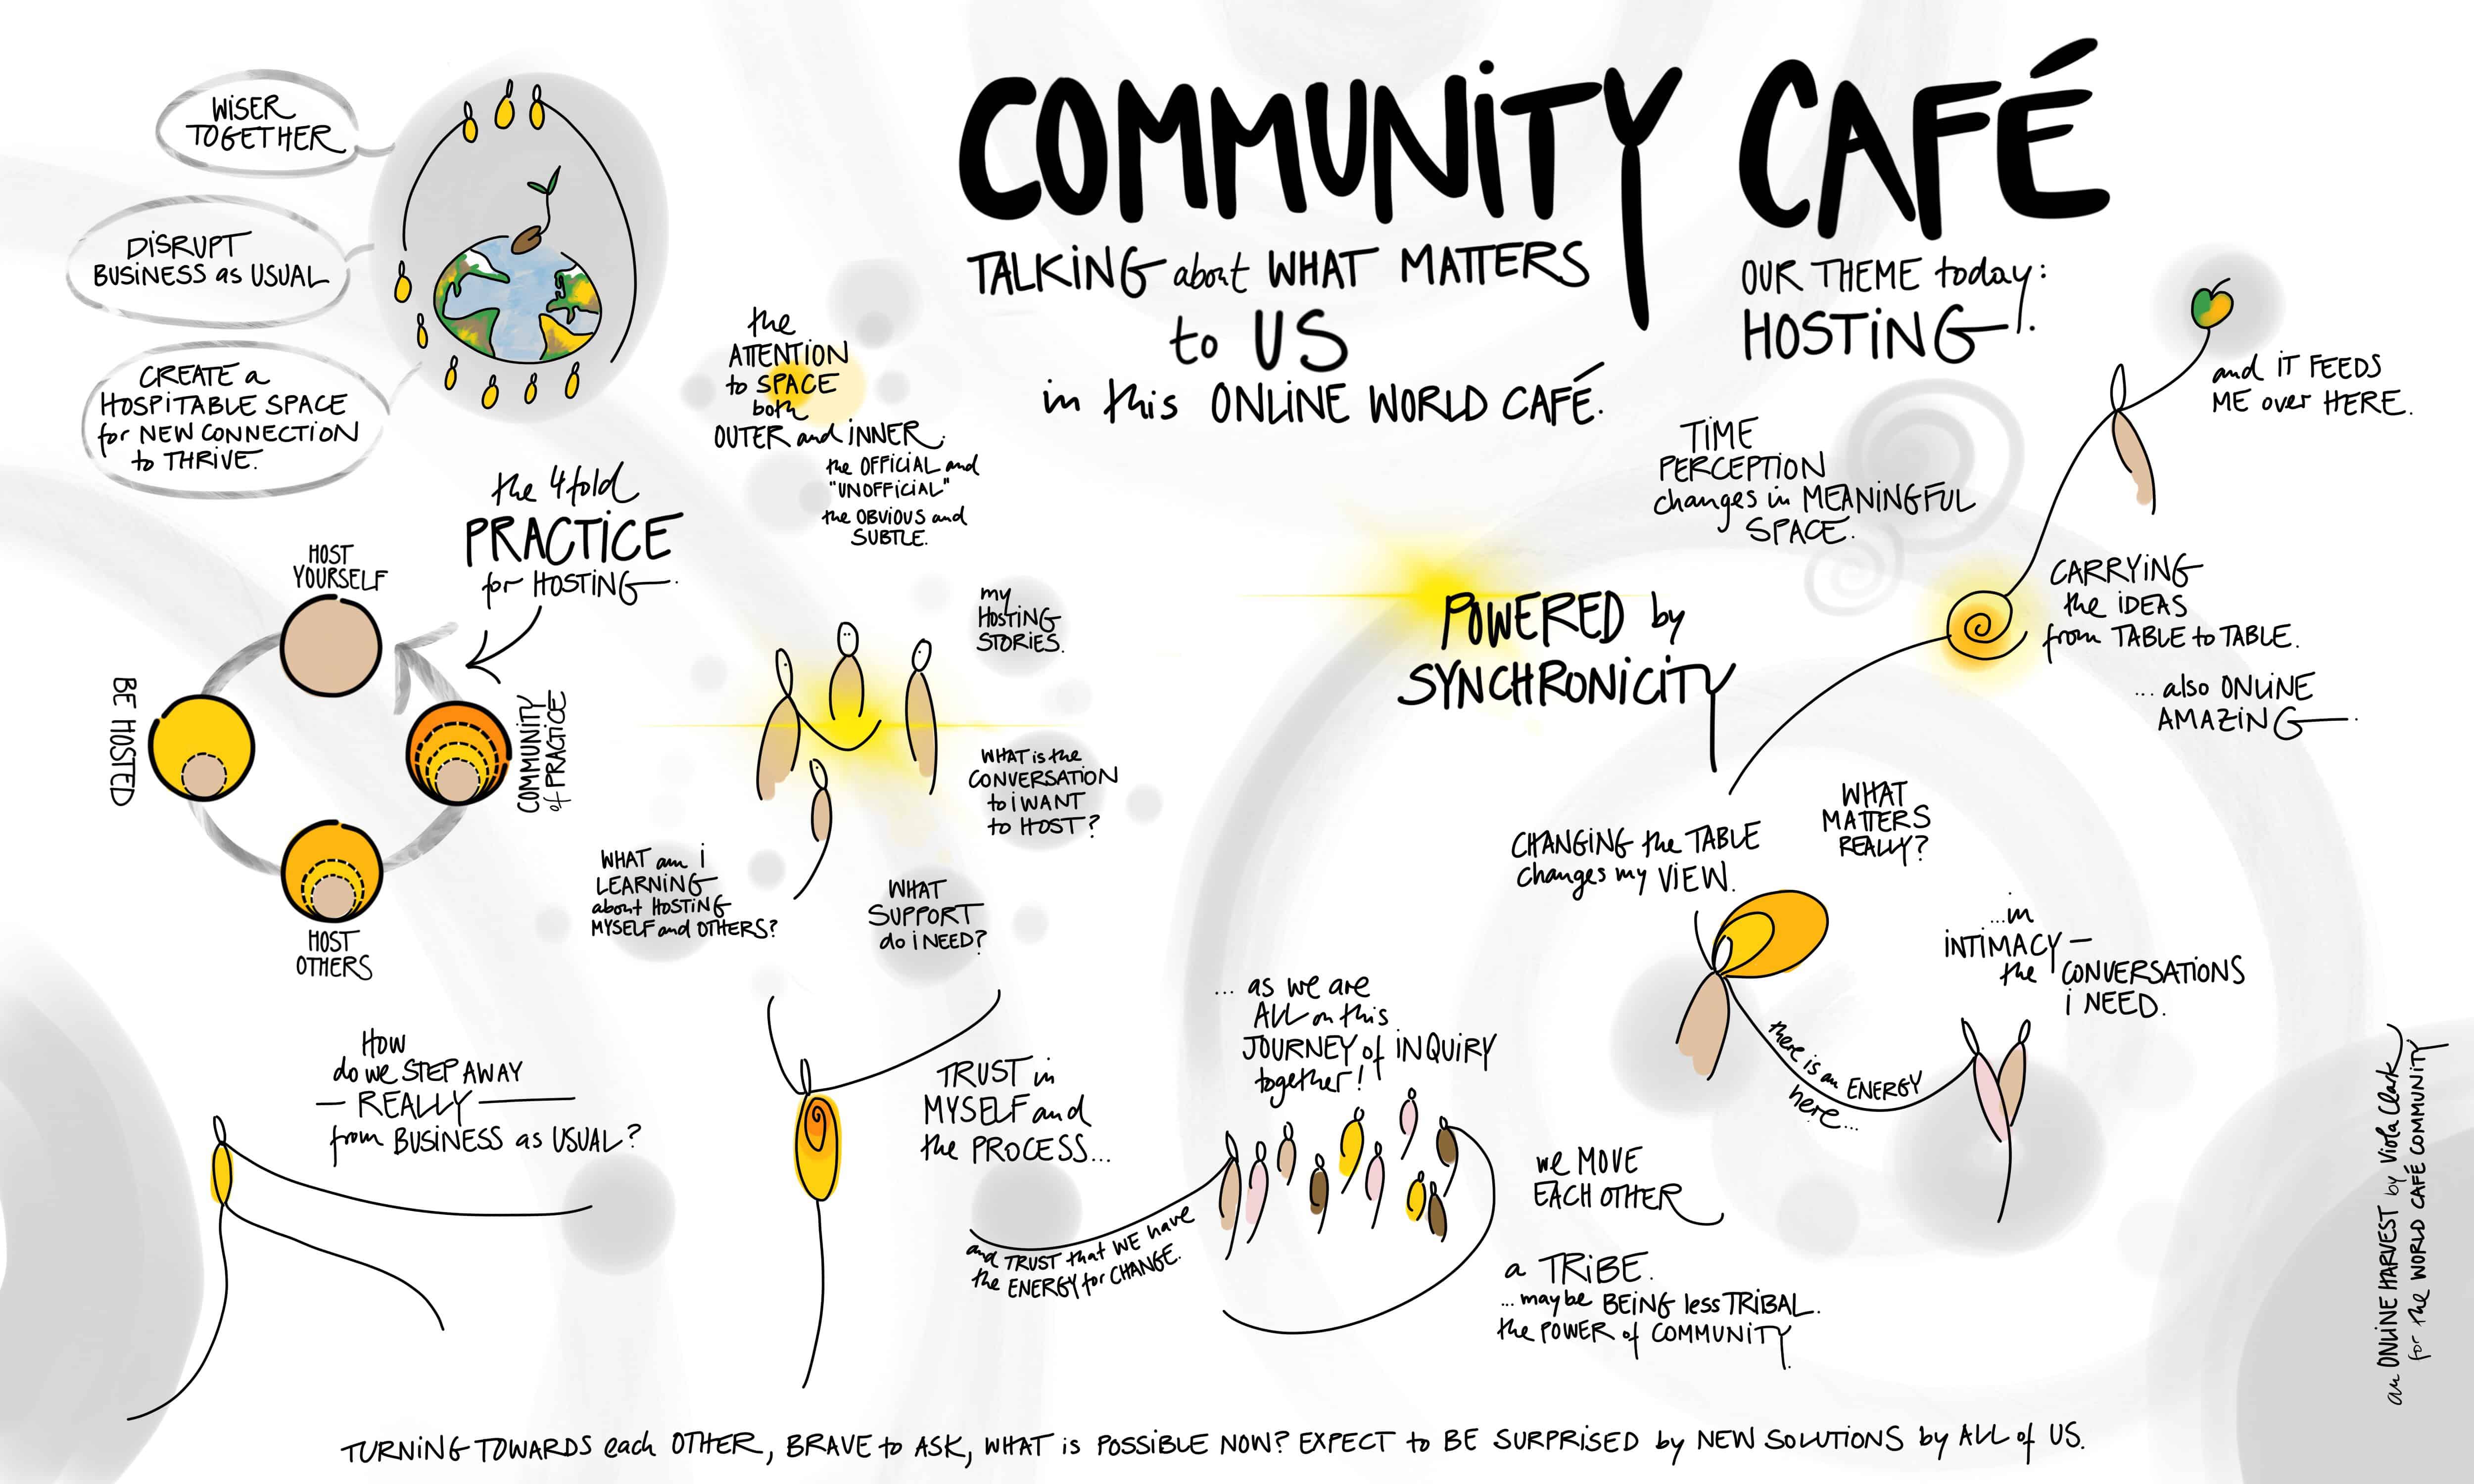 COMMUNITY CAFÉ
TALKING about WHAT MATTERS
to US
in this ONLINE WORLD CAFÉ.
OUR THEME today:
HOSTING!
WISER
TOGETHER
DISRUPT
BUSINESS as USUAL
CREATE a
HOSPITABLE SPACE
for NEW CONNECTION
to THRIVE.
the
ATTENTION
to SPACE
both
OUTER and INNER.
the OFFICIAL and
"UNOFFICIAL"
the OBVIOUS and
SUBTLE.
the 4fold
PRACTICE
for HOSTING.
HOST
YOURSELF
BE HOSTED
HOST
OTHERS
COMMUNITY
of PRACTICE
my
HOSTING
STORIES.
WHAT is the
CONVERSATION
to I WANT
to HOST?
WHAT am I
LEARNING
about HOSTING
MYSELF and OTHERS?
WHAT
SUPPORT
do I NEED?
HOW
do we STEP AWAY
— REALLY —
from BUSINESS as USUAL?
TRUST in
MYSELF and
the PROCESS...
and TRUST that WE have
the ENERGY for CHANGE.
... as we are
ALL on this
JOURNEY of INQUIRY
together!
we MOVE
EACH OTHER
a TRIBE.
... maybe BEING less TRIBAL.
the POWER of COMMUNITY.
POWERED by
SYNCHRONICITY
TIME
PERCEPTION
changes in MEANINGFUL
SPACE.
and IT FEEDS
ME over HERE.
CARRYING
the IDEAS
from TABLE to TABLE.
... also ONLINE
AMAZING.
CHANGING the TABLE
changes my VIEW.
WHAT
MATTERS
REALLY?
...in
INTIMACY –
the CONVERSATIONS
I NEED.
there is an ENERGY
here...
an ONLINE HARVEST by Viola Clark
for the WORLD CAFÉ COMMUNITY
TURNING TOWARDS each OTHER, BRAVE to ASK, WHAT is POSSIBLE NOW? EXPECT to BE SURPRISED by NEW SOLUTIONS by ALL of US.